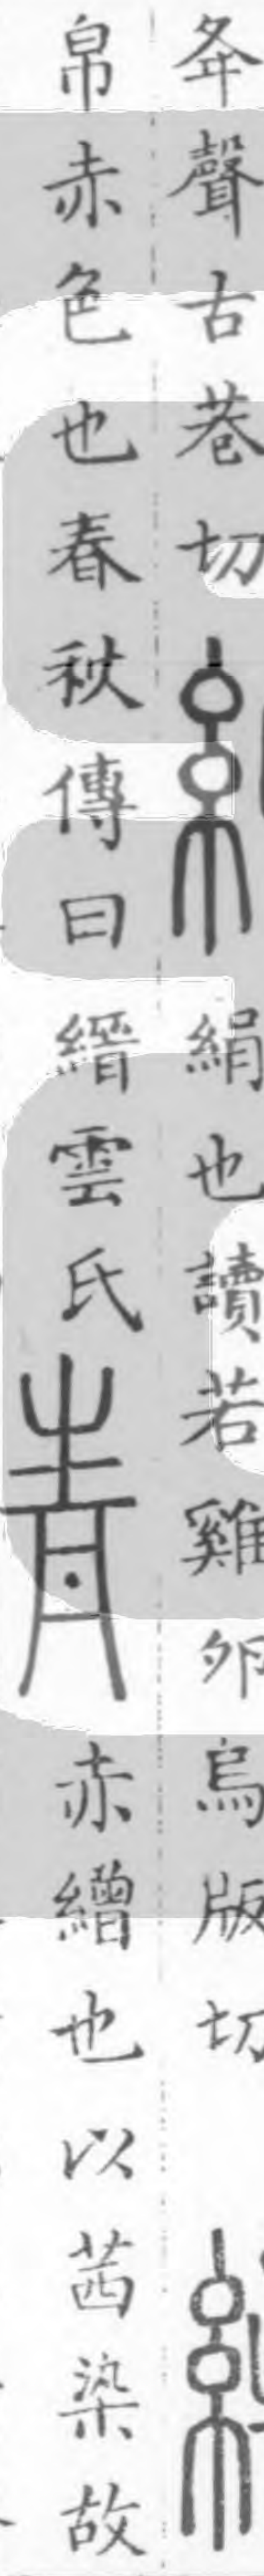 夅聲古巷切絹也讀若雞卵烏版切
帛赤色也春秋傳曰縉雲氏赤繒也以茜染故